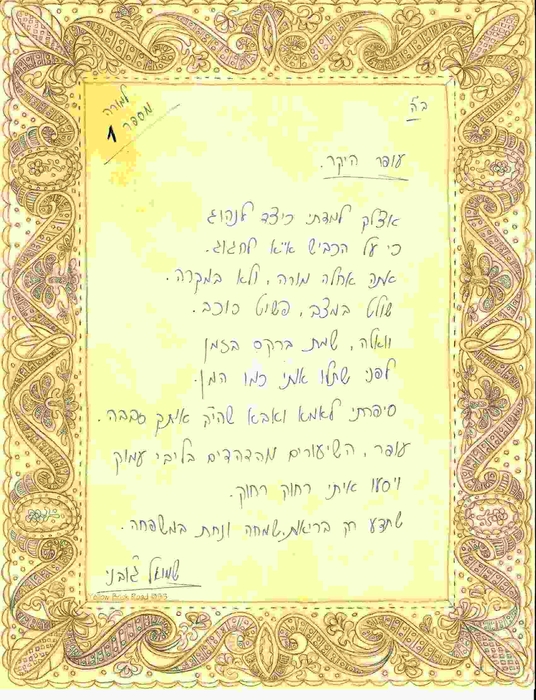 ב"ה
למורה
מספר 1
עופר היקר.
אצלך למדתי כיצד לנהוג
כי על הכביש א"א לחגוג.
אתה אחלה מורה, ולא במקרה.
שולט במצב, פשוט כוכב.
וואלה, שמת ברקס בזמן
לפני שתלו אותי כמו המן.
סיפרתי לאמא ואבא שהיה איתך סבבה.
עופר, השיעורים מהדהדים בליבי עמוק
ויסעו איתי רחוק רחוק.
שתדע רק בריאות, שמחה ונחת במשפחה.
שמואל
Yellow Brick Road